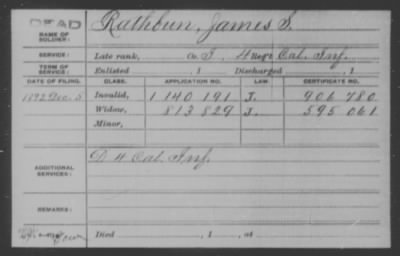 DEAD
NAME OF SOLDIER: Rathbun, James S.
SERVICE: Late rank, Co. I, 4 Reg't Cal. Inf.
TERM OF SERVICE: Enlisted , 1 Discharged , 1
DATE OF FILING. CLASS. APPLICATION NO. LAW. CERTIFICATE NO.
1892 Dec. 5 Invalid, 1 140 191 J. 906 780
Widow, 813 829 J. 595 061
Minor,
ADDITIONAL SERVICES: D 4 Cal. Inf.
REMARKS:
Died , 1 , at